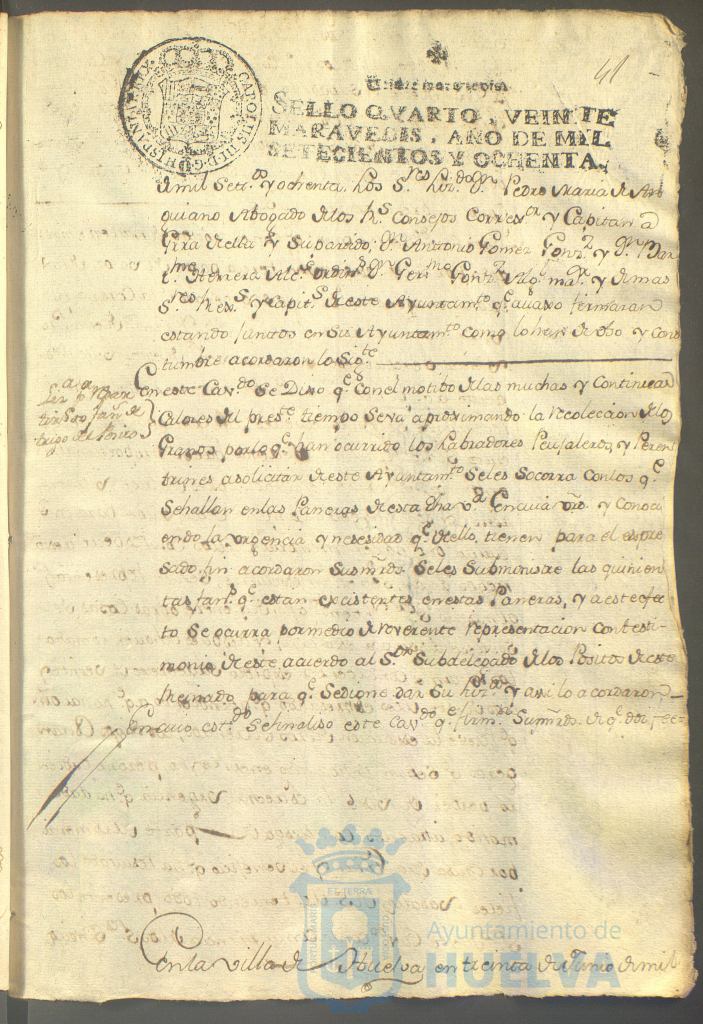 41
Veinte maravedis.
SELLO QVARTO, VEINTE
MARAVEDIS, AÑO DE MIL
SETECIENTOS Y OCHENTA.
CAROLUS III D.G. HISPANIAR. REX
de mil Set.tos y ochenta, los S.res Liz.do D.n Pedro Maria de
quiano Abogado de los R.s Consejos Correx.or y Capitan a
Grra de ella y Su partido; D.n Antonio Gomez Gonz.z y D.n Bar
me Herrera Alc.s ordin.s D.n Ger.mo Gonz.z Alg.l ma.or y demas
S.res Rex.s y Capit.s de este Ayuntam.to q.e avaxo firmaran
estando juntos en Su Ayuntam.to como lo han de uso y cos
tumbre acordaron lo Sig.te
En este Cav.do Se Dixo q.e con el motibo de las muchas y Continuas
Calores del pres.te tiempo Se va aproximando la Recoleccion de los
Granos por lo q.e han ocurrido los Labradores Peujaleros, y Peren
trines a solicitar de este Ayuntam.to Se les Socorra con los q.e
Se hallan en las Paneras de esta dha v.a En cuia y Conoci
endo la urgencia y nesesidad q.e de ello tienen para el espre
sado fin acordaron Sus mrds. Se les Submonistre las quinien
tas fan.s q.e estan existentes en estas Paneras, y a este efec
to Se ocurra por medio de reverente representacion con testi
monio de este acuerdo al S.or Subdelegado de los Positos de este
Reinado para q.e Se digne dar Su liz.a y asi lo acordaron
En cuio est.do Se finaliso este Cav.do q.e firm.n Sus mrds. de q.e doi fee
trigo del Posito
En la villa de Huelva en treinta de Junio de mil
Ayuntamiento de
HUELVA